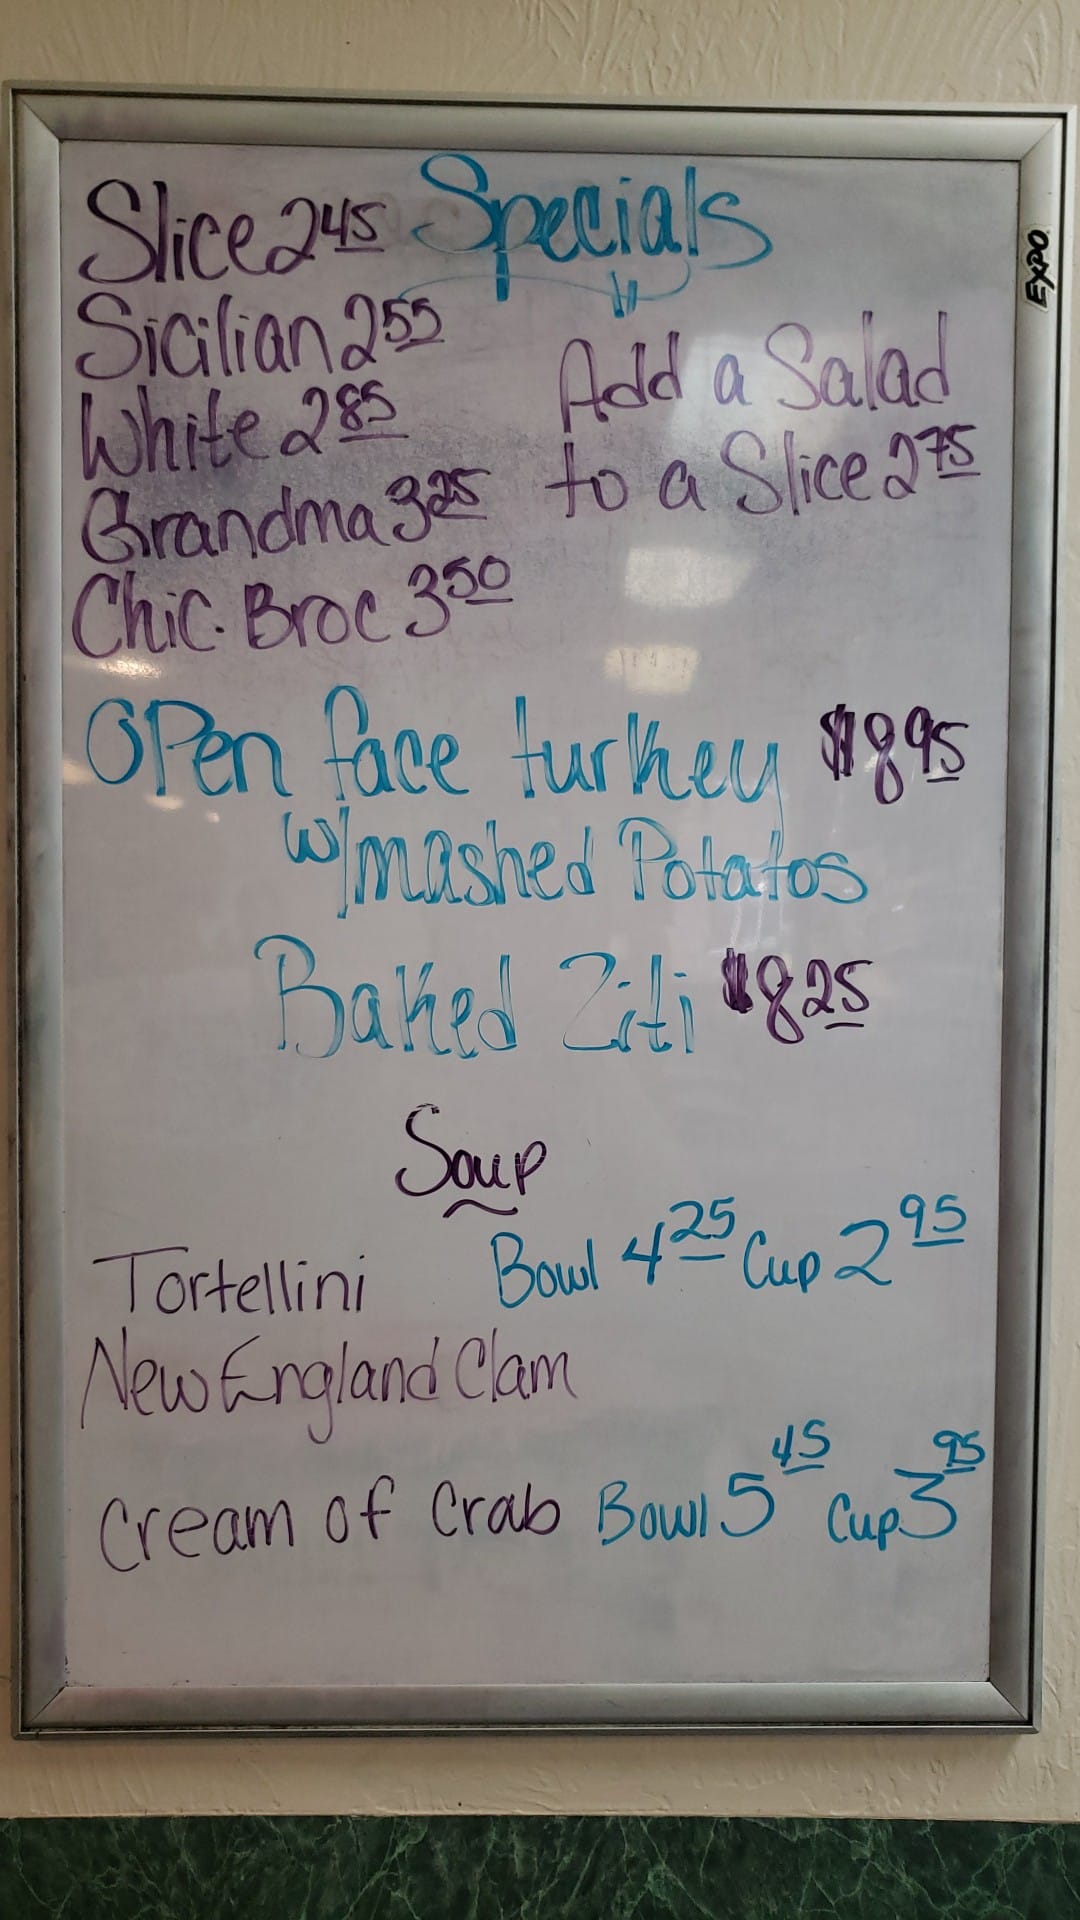 Specials
Slice 2 45
Sicilian 2 55
White 2 85
Grandma 3 25
Chic. Broc 3 50
Add a Salad
to a Slice 2 75
Open face turkey $8 95
w/mashed Potatos
Baked Ziti $8 25
Soup
Tortellini Bowl 4 25 Cup 2 95
New England Clam
Cream of Crab Bowl 5 45 Cup 3 95
EXPO